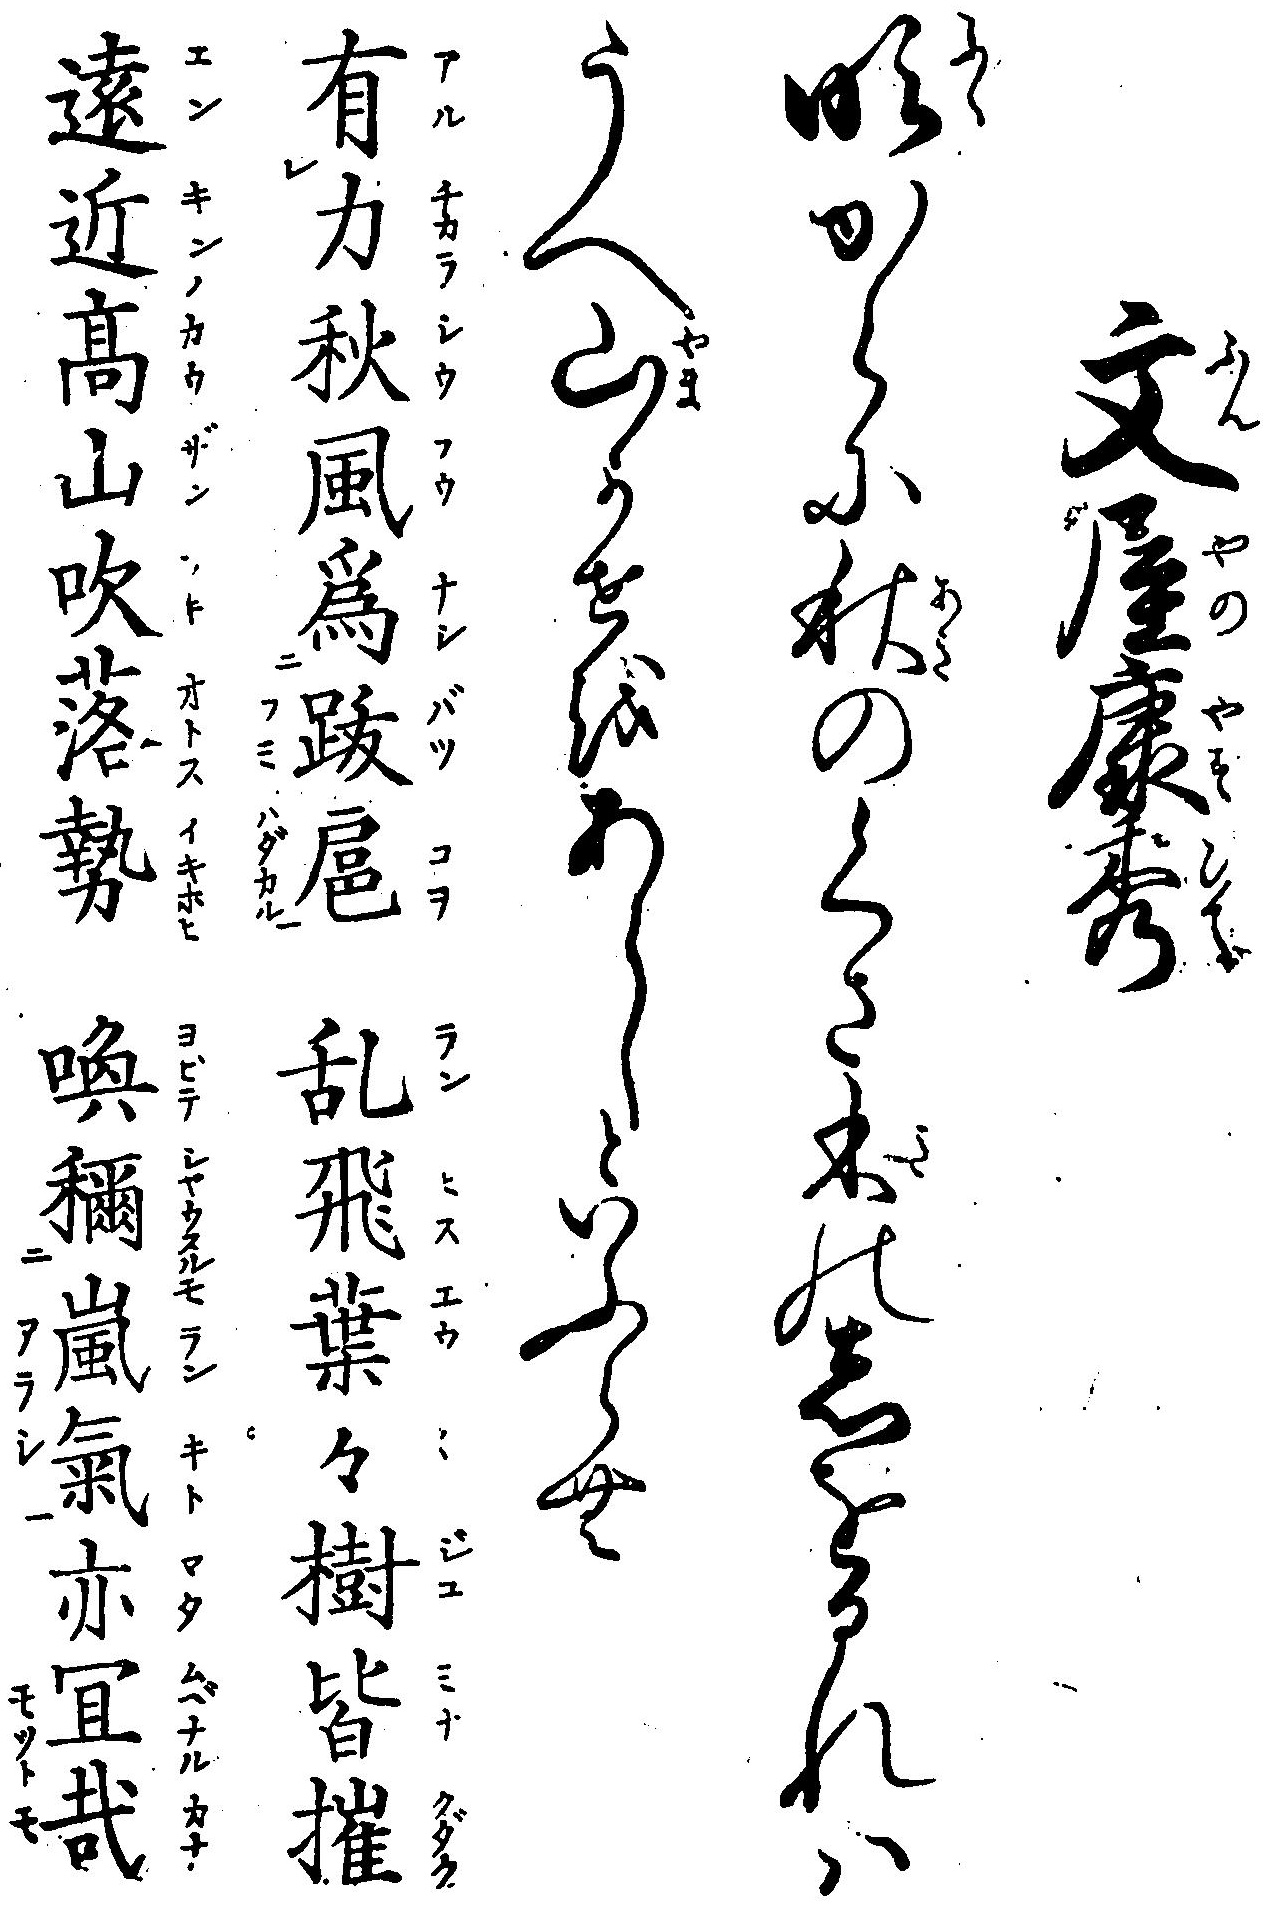 文屋康秀
吹からに秋のくさ木の志をるれハ
うへ山かせをあらしといふらむ
有力秋風爲跋扈 乱飛葉々樹皆摧
遠近高山吹落勢 喚穪嵐氣亦冝哉